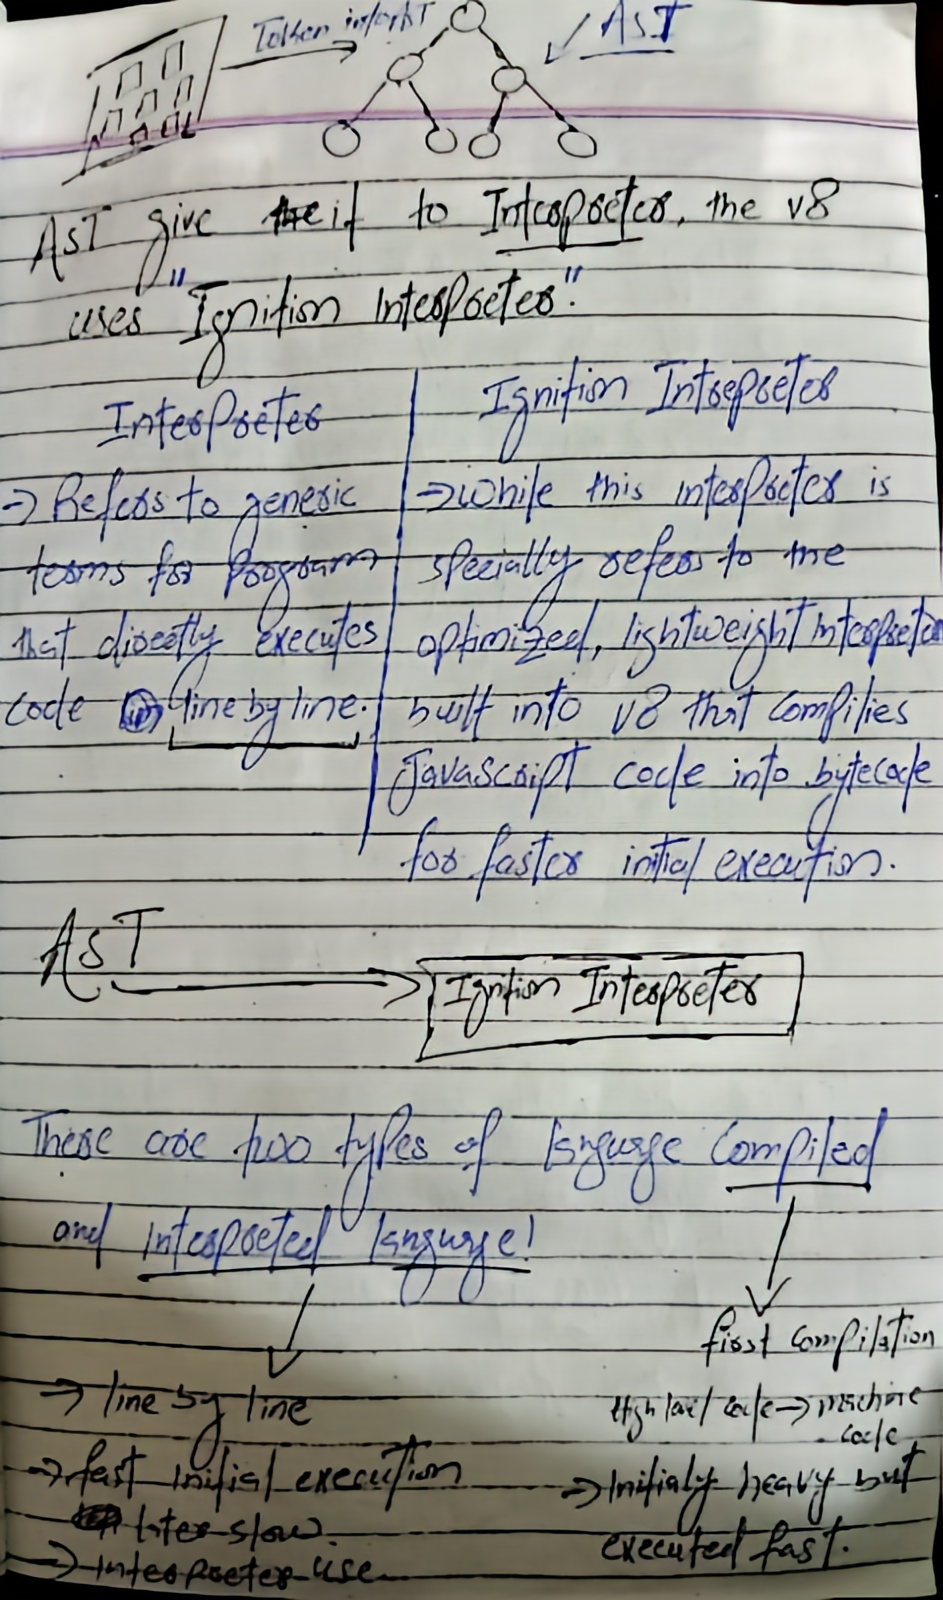 Token into AST
AST
AST give it to Interpreter, the v8
uses "Ignition Interpreter".
Interpreter
→ Refers to generic
terms for Program
that directly executes
code line by line.
Ignition Intrepreter
→ While this interpreter is
specially refers to the
optimized, lightweight Interpreter
built into v8 that compilies
Javascript code into bytecode
for faster initial execution.
AST
Ignition Interpreter
There are two types of language Compiled
and Interpreted language!
→ line by line
→ fast initial execution
later slow.
→ Interpreter use
first Compilation
High level code → machine
code
→ Initialy heavy but
executed fast.